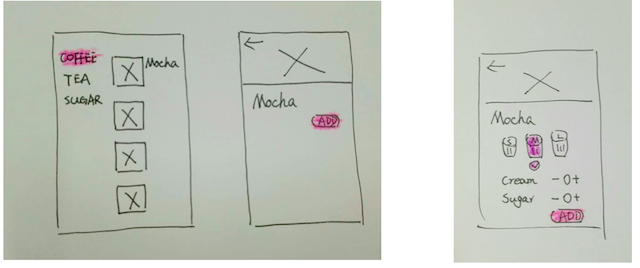 COFFEE
TEA
SUGAR
Mocha
Mocha
ADD
Mocha
S M L
Cream - 0 +
Sugar - 0 +
ADD